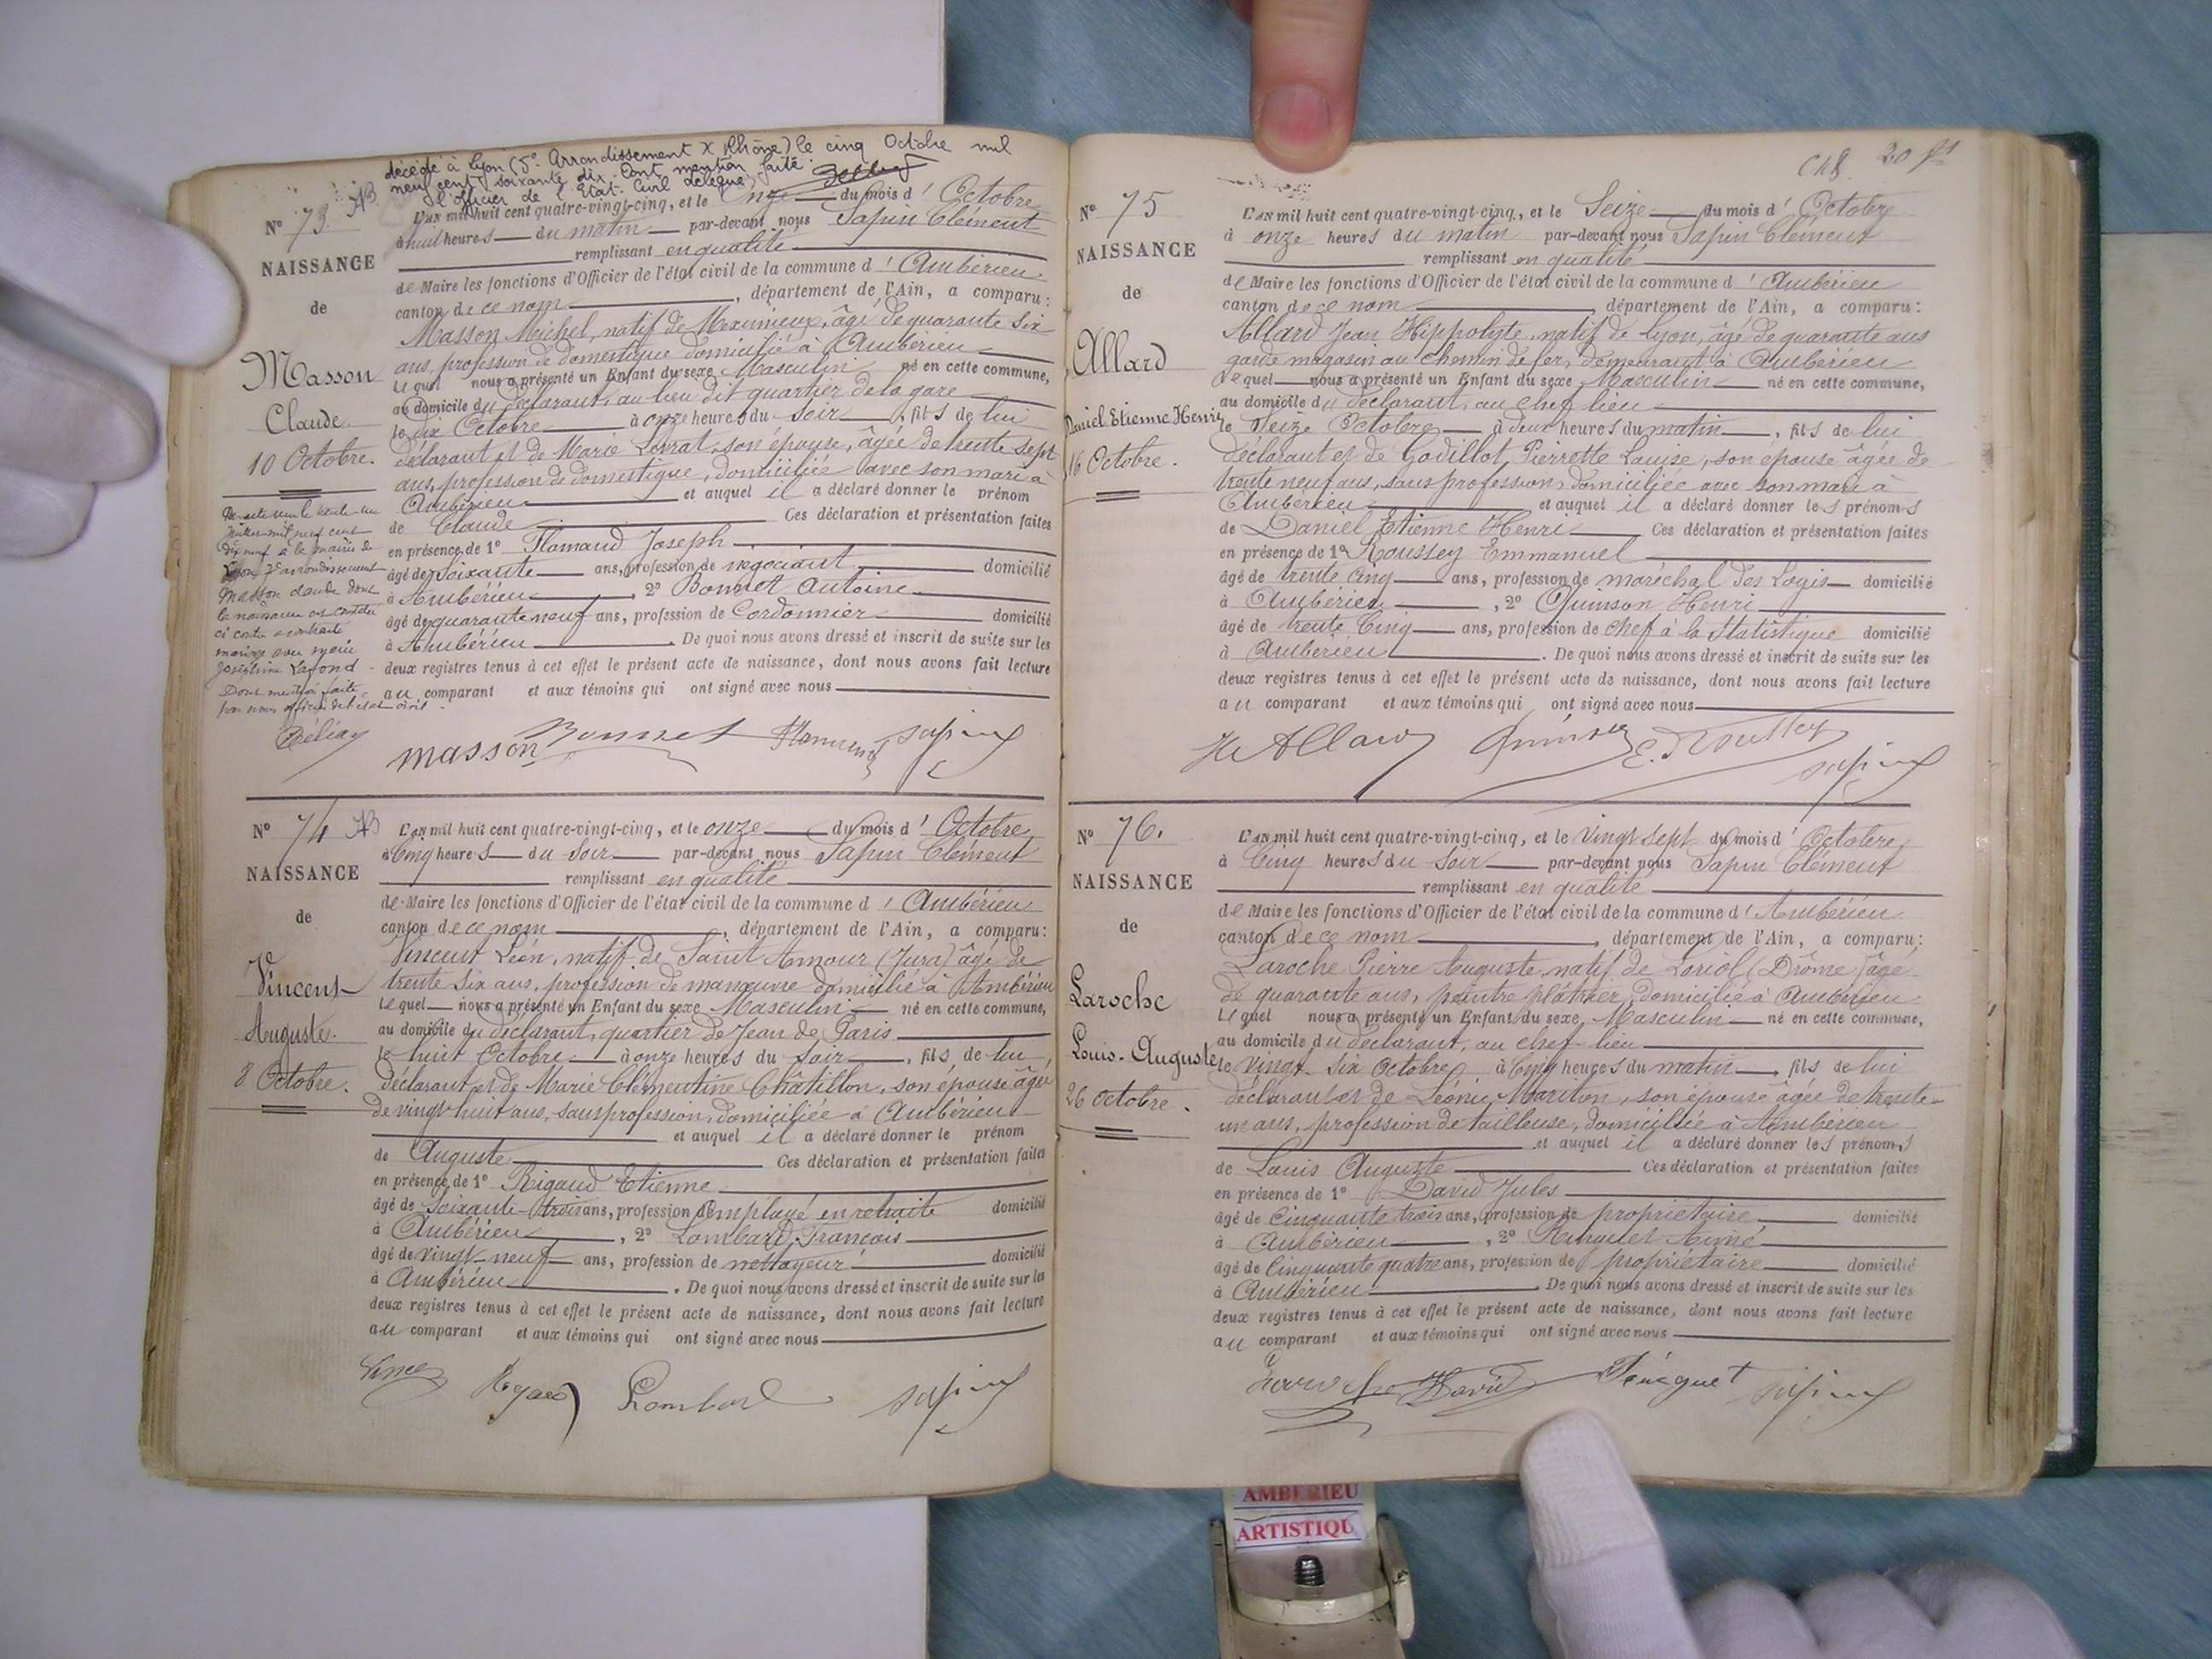 décédé à Lyon (5e Arrondissement X Rhône) le cinq Octobre mil
neuf cent soixante dix. Dont mention faite.
l'officier de l'Etat-Civil délégué
N° 73. AB
NAISSANCE
de
Masson
Claude
10 Octobre.
L'an mil huit cent quatre-vingt-cinq, et le onze du mois d'Octobre
à huit heures du matin par-devant nous Sapin Clément
remplissant en qualité
de Maire les fonctions d'Officier de l'état civil de la commune d'Ambérieu
canton de ce nom, département de l'Ain, a comparu:
Masson Michel, natif de Meximieux, âgé de quarante six
ans, profession de domestique domicilié à Ambérieu
Lequel nous a présenté un Enfant du sexe Masculin né en cette commune,
au domicile du déclarant, au lieu dit quartier de la gare
le dix Octobre à onze heures du soir, fils de lui
déclarant et de Marie Lorrat, son épouse, âgée de trente sept
ans, profession de domestique, domiciliée avec son mari à
Ambérieu et auquel il a déclaré donner le prénom
de Claude Ces déclaration et présentation faites
en présence de 1° Flamand Joseph
âgé de soixante ans, profession de négociant domicilié
à Ambérieu, 2° Bonnet Antoine
âgé de quarante neuf ans, profession de Cordonnier domicilié
à Ambérieu. De quoi nous avons dressé et inscrit de suite sur les
deux registres tenus à cet effet le présent acte de naissance, dont nous avons fait lecture
au comparant et aux témoins qui ont signé avec nous
juillet mil neuf cent
dix neuf à la mairie de
Lyon 7e arrondissement
Masson Claude dont
la naissance est constatée
ci contre a contracté
mariage avec Marie
Joséphine Lafond
Dont mention faite
par nous officier de l'état civil.
masson Bonnet Flamand Sapin
N° 74 AB
NAISSANCE
de
Vincent
Auguste.
8 Octobre.
L'an mil huit cent quatre-vingt-cinq, et le onze du mois d'Octobre
à cinq heures du soir par-devant nous Sapin Clément
remplissant en qualité
de Maire les fonctions d'Officier de l'état civil de la commune d'Ambérieu
canton de ce nom, département de l'Ain, a comparu:
Vincent Léon, natif de Saint Amour (Jura) âgé de
trente six ans, profession de manœuvre domicilié à Ambérieu
Lequel nous a présenté un Enfant du sexe Masculin né en cette commune,
au domicile du déclarant, quartier de Jean de Paris
le huit Octobre à onze heures du soir, fils de lui,
déclarant et de Marie Clémentine Châtillon, son épouse âgée
de vingt huit ans, sans profession, domiciliée à Ambérieu
et auquel il a déclaré donner le prénom
de Auguste Ces déclaration et présentation faites
en présence de 1° Rigaud Etienne
âgé de soixante trois ans, profession d'employé en retraite domicilié
à Ambérieu, 2° Lombard François
âgé de vingt neuf ans, profession de nettoyeur domicilié
à Ambérieu. De quoi nous avons dressé et inscrit de suite sur les
deux registres tenus à cet effet le présent acte de naissance, dont nous avons fait lecture
au comparant et aux témoins qui ont signé avec nous
Lombard Sapin
20 f.t
N° 75
NAISSANCE
de
Allard
Daniel Etienne Henri
16 Octobre.
L'an mil huit cent quatre-vingt-cinq, et le Seize du mois d'Octobre
à onze heures du matin par-devant nous Sapin Clément
remplissant en qualité
de Maire les fonctions d'Officier de l'état civil de la commune d'Ambérieu
canton de ce nom, département de l'Ain, a comparu:
Allard Jean Hippolyte, natif de Lyon, âgé de quarante ans
garde magasin au chemin de fer, demeurant à Ambérieu
Lequel nous a présenté un Enfant du sexe Masculin né en cette commune,
au domicile du déclarant, au chef lieu
le Seize Octobre à deux heures du matin, fils de lui
déclarant et de Godillot Pierrette Louise, son épouse âgée de
trente neuf ans, sans profession, domiciliée avec son mari à
Ambérieu et auquel il a déclaré donner les prénoms
de Daniel Etienne Henri Ces déclaration et présentation faites
en présence de 1° Roussey Emmanuel
âgé de trente cinq ans, profession de maréchal des Logis domicilié
à Ambérieu, 2° Quinson Henri
âgé de trente cinq ans, profession de chef à la Statistique domicilié
à Ambérieu. De quoi nous avons dressé et inscrit de suite sur les
deux registres tenus à cet effet le présent acte de naissance, dont nous avons fait lecture
au comparant et aux témoins qui ont signé avec nous
H Allard Quinson E. Roussey
Sapin
N° 76.
NAISSANCE
de
Laroche
Louis-Auguste
26 octobre.
L'an mil huit cent quatre-vingt-cinq, et le vingt sept du mois d'Octobre
à cinq heures du soir par-devant nous Sapin Clément
remplissant en qualité
de Maire les fonctions d'Officier de l'état civil de la commune d'Ambérieu
canton de ce nom, département de l'Ain, a comparu:
Laroche Pierre Auguste, natif de Loriol (Drôme) âgé
de quarante ans, peintre plâtrier, domicilié à Ambérieu
Lequel nous a présenté un Enfant du sexe Masculin né en cette commune,
au domicile du déclarant, au chef-lieu
le vingt six Octobre à cinq heures du matin, fils de lui
déclarant et de Léonie Mariton, son épouse âgée de trente-
un ans, profession de tailleuse, domiciliée à Ambérieu
et auquel il a déclaré donner les prénoms
de Louis Auguste Ces déclaration et présentation faites
en présence de 1° David Jules
âgé de cinquante trois ans, profession de propriétaire domicilié
à Ambérieu, 2° Aimé
âgé de cinquante quatre ans, profession de propriétaire domicilié
à Ambérieu. De quoi nous avons dressé et inscrit de suite sur les
deux registres tenus à cet effet le présent acte de naissance, dont nous avons fait lecture
au comparant et aux témoins qui ont signé avec nous
Laroche David Sapin
AMBERIEU
ARTISTIQU